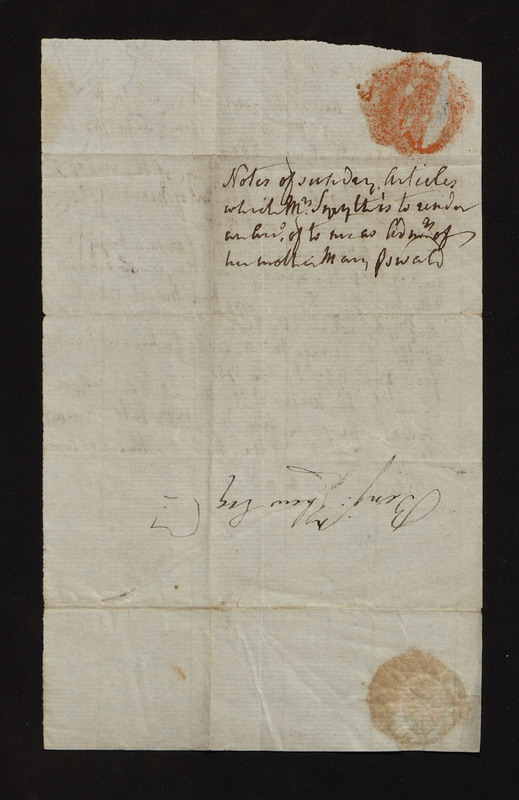 Notes of sunday Articles
which Mrs Smyth is to render
an Acco. of to me as Admr. of
her mother Mary Oswald
Benj: Chew Esq